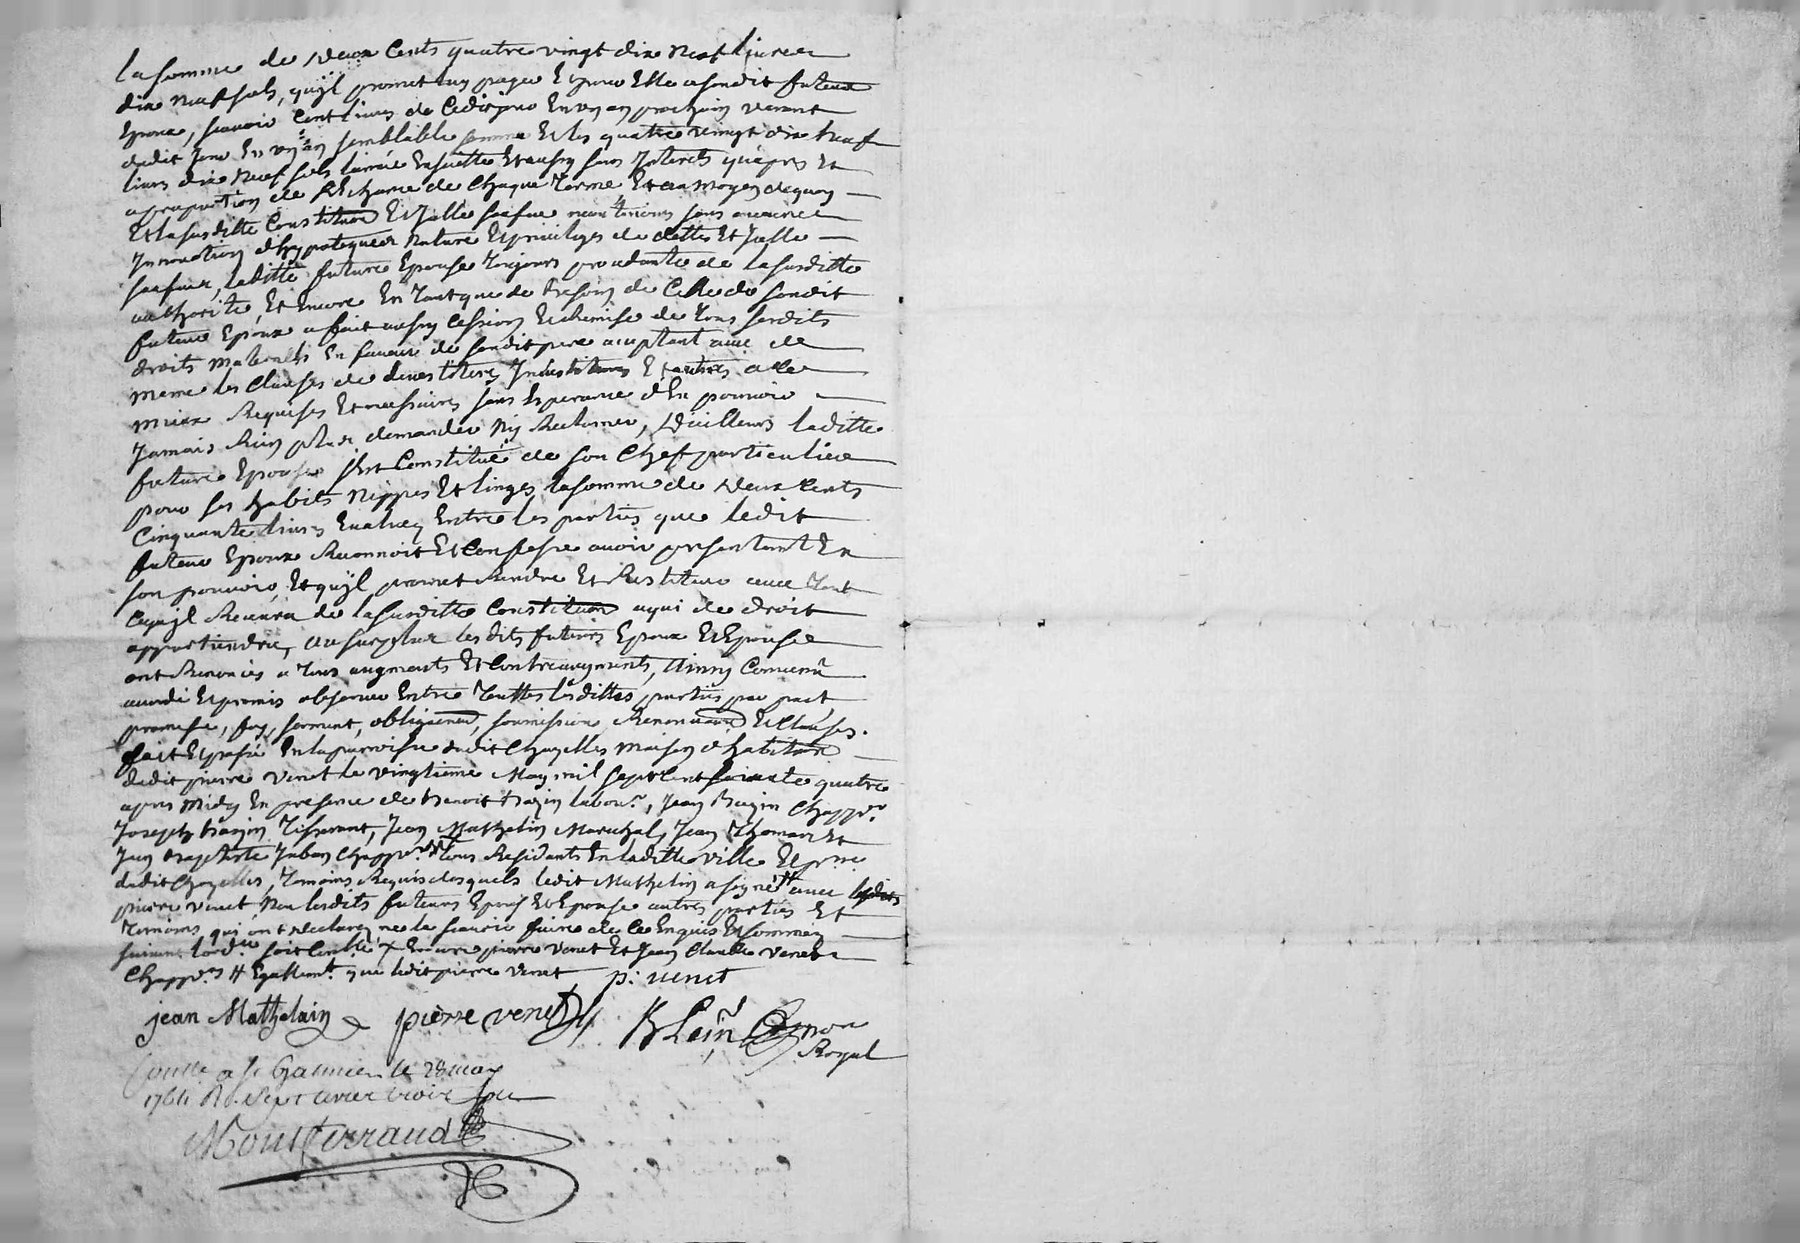 la somme de Deux Cents quatre vingt dix neuf livres
dix neuf sols, quyl promet luy payer Et pour Elle a sondit futeur
Epoux, scavoir Cent livres de Cedit jour En un an prochain venant
dudit jour En un an semblable somme Et les quatre vingt dix Neuf
livres dix neuf sols lannée Ensuitte Et aussy sans Interets qúapres Et
a proportion de lEcheance de Chaque Terme Et au moyen dequoy
Et la susditte Constitution Et Jcelle saufue neantmoins sans aucune
Jnnovation dhypoteques nature Et privileges de dettes Et Jcelle
saufue, laditte future Epouse toujours procedante de la susditte
authorité, Et Encore En tant que de besoin de Celle de sondit
futeur Epoux a fait aussy Cession Et remise de tous sesdits
droits maternels En faveur de sondit pere acceptant avec de
meme les Clauses de devestiture, Jnvestitures Et autres a ce
mieux Requises Et necessaires sans Esperance dEn pouvoir
Jamais Rien plus demander Ny Reclamer, D'ailleurs laditte
future Epouse sest Constitué de son Chef particulier
pour ses habits Nippes Et linges la somme de Deux Cents
Cinquante livres Evaluez Entre les parties que ledit
futeur Epoux Reconnoit Et Confesse avoir presentement En
son pouvoir, Et quyl promet Rendre Et Restituer avec tout
Cequyl Recevra de la susditte Constitution a qui de droit
appartiendra, au surplus les dits futeurs Epoux Et Epouse
ont Renoncés a tous augments Et Contreaugments, Ainsy Convenu
accordé Et promis observer Entre touttes lesdittes parties par pact,
promesse, foy, serment, obligation, soumission, Renonciation Et Clauses.
fait Et passé En la parroisse dudit Chazelles maison d'habitation
dudit pierre Venet le vingtieme May mil sept Cent soixante quatre
apres midy En presence de benoit bazin labour., Jean Bazin Chapp.r
Joseph bazin Tisserant, Jean Mathelin Marechal, Jean Thomas Et
Jean Baptiste Chapp.rs tous Residants En laditte ville Et parr.
dudit Chazelles, temoins Requis desquels ledit Mathelin a signé avec ledit
pierre Venet Non lesdits futeurs Epoux Et Epouse autres parties Et
temoins qui ont declarez ne le scavoir faire de ce Enquis Et sommez
suivant lord.ce soit Controllé Encore pierre Venet Et Jean Claude Venet
Chapp.rs # Egallem.t que ledit pierre Venet p: venet
jean Mathelain pierre venet
Royal
Controllé a St Galmier le 28 may
1764 R. sept livres trois sols
Montferrand